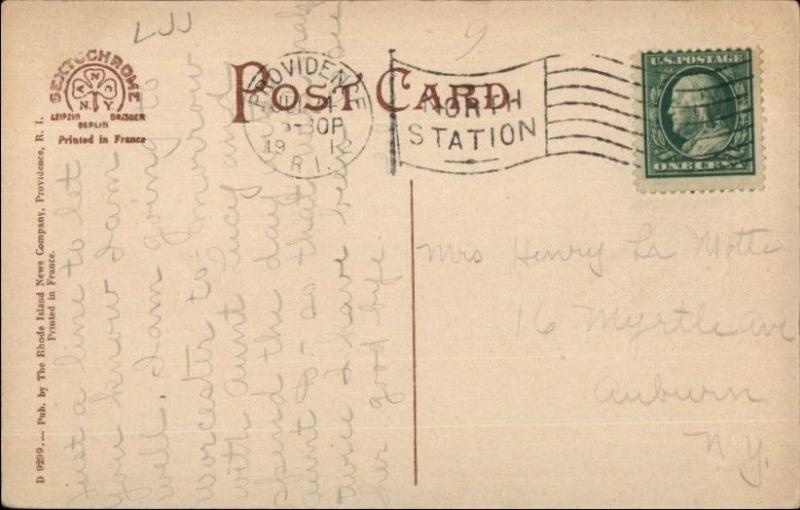 LJJ
SEXTOCHROME
ANC
N.Y.
LEIPZIG DRESDEN
BERLIN
Printed in France
POST CARD
PROVIDENCE
R.I.
NORTH
STATION
U.S. POSTAGE
ONE CENT
D 9299.— Pub. by The Rhode Island News Company, Providence, R. I.
Printed in France.
just a line to let
you know I am
well. I am going to
Worcester to morrow
with aunt Lucy and
spend the day with
aunt so that
twice I have been
her good bye.
Mrs Henry La Motte
16 Myrtle ave
Auburn
N.Y.